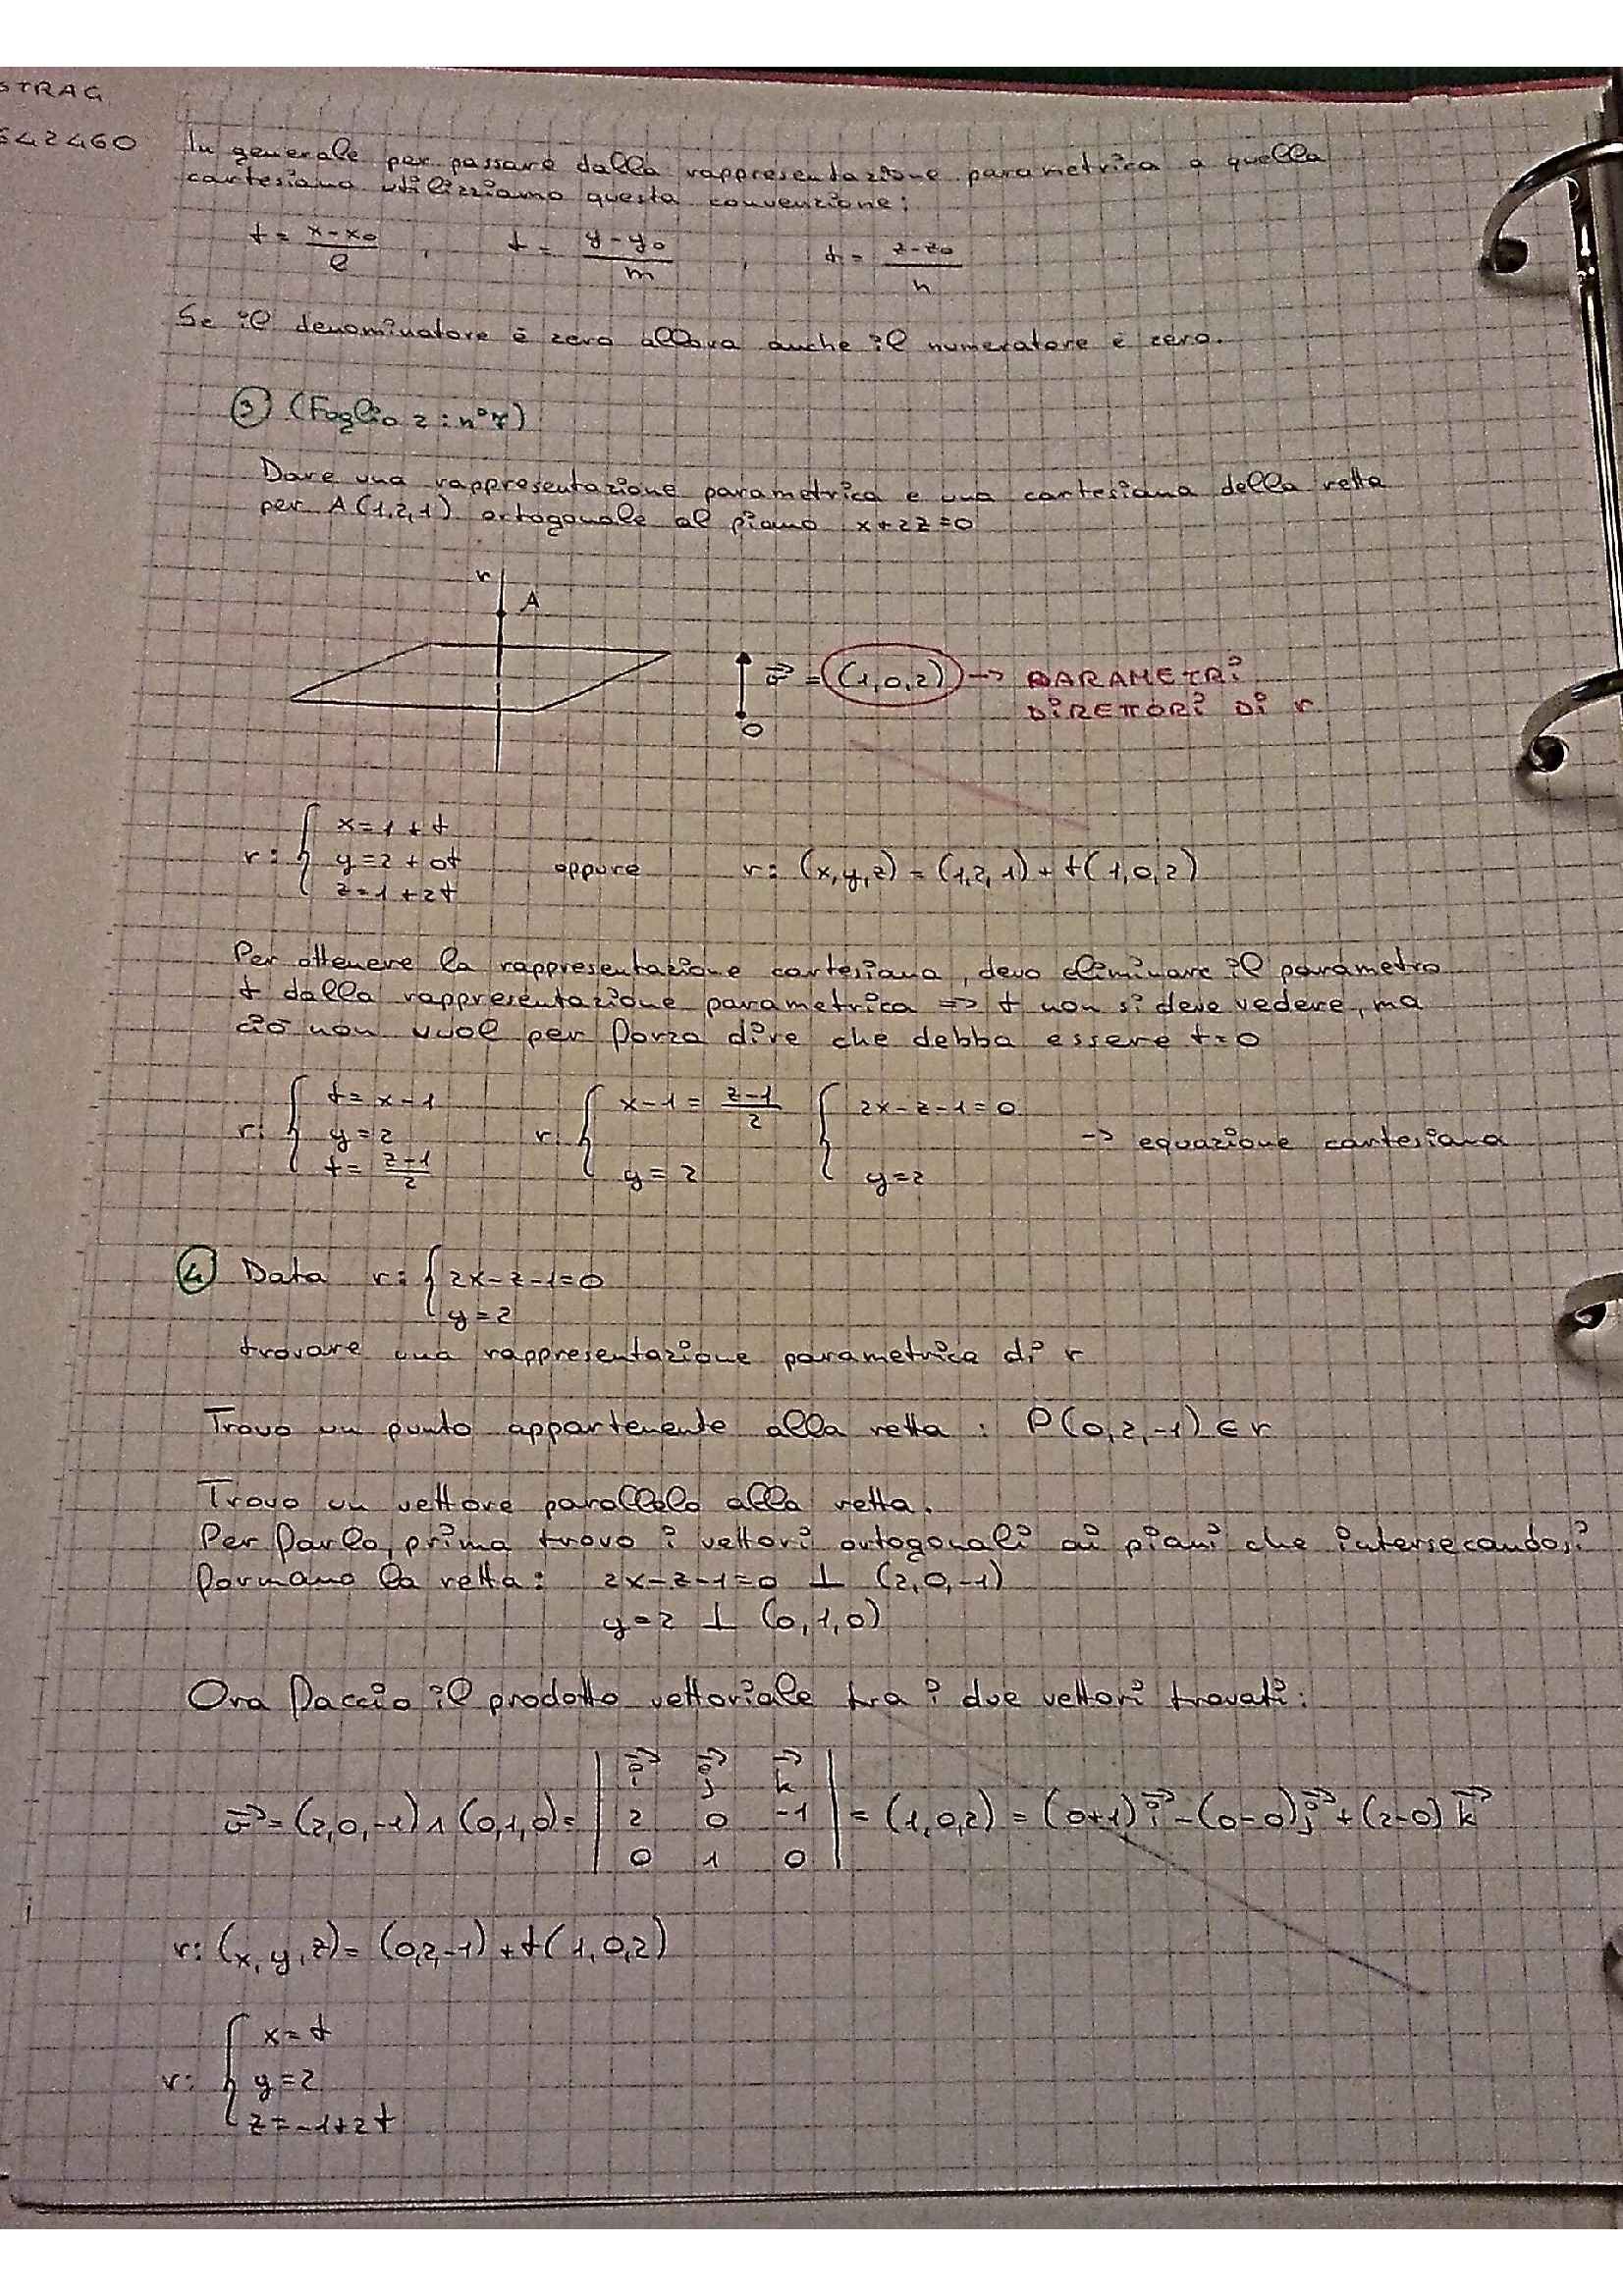 STRAG
642460
In generale per passare dalla rappresentazione parametrica a quella
cartesiana utilizziamo questa convenzione:
t = (x-x₀)/l , t = (y-y₀)/m , t = (z-z₀)/n
Se il denominatore è zero allora anche il numeratore è zero.
③ (Foglio 2: n°7)
Dare una rappresentazione parametrica e una cartesiana della retta
per A(1,2,1) ortogonale al piano x+2z=0
r
A
v⃗ = (1,0,2) -> PARAMETRI
DIRETTORI DI r
O
r: { x=1+t
y=2+0t
z=1+2t
oppure r: (x,y,z) = (1,2,1) + t(1,0,2)
Per ottenere la rappresentazione cartesiana, devo eliminare il parametro
t dalla rappresentazione parametrica => t non si deve vedere, ma
ciò non vuol per forza dire che debba essere t=0
r: { t=x-1
y=2
t=(z-1)/2
r: { x-1=(z-1)/2
y=2
{ 2x-z-1=0
y=2
-> equazione cartesiana
④ Data r: { 2x-z-1=0
y=2
trovare una rappresentazione parametrica di r
Trovo un punto appartenente alla retta : P(0,2,-1) ∈ r
Trovo un vettore parallelo alla retta.
Per farlo, prima trovo i vettori ortogonali ai piani che intersecandosi
formano la retta: 2x-z-1=0 ⊥ (2,0,-1)
y=2 ⊥ (0,1,0)
Ora faccio il prodotto vettoriale tra i due vettori trovati:
v⃗ = (2,0,-1) ∧ (0,1,0) = | i⃗ j⃗ k⃗
2 0 -1
0 1 0 | = (1,0,2) = (0+1)i⃗ - (0-0)j⃗ + (2-0)k⃗
r: (x,y,z) = (0,2,-1) + t(1,0,2)
r: { x=t
y=2
z=-1+2t